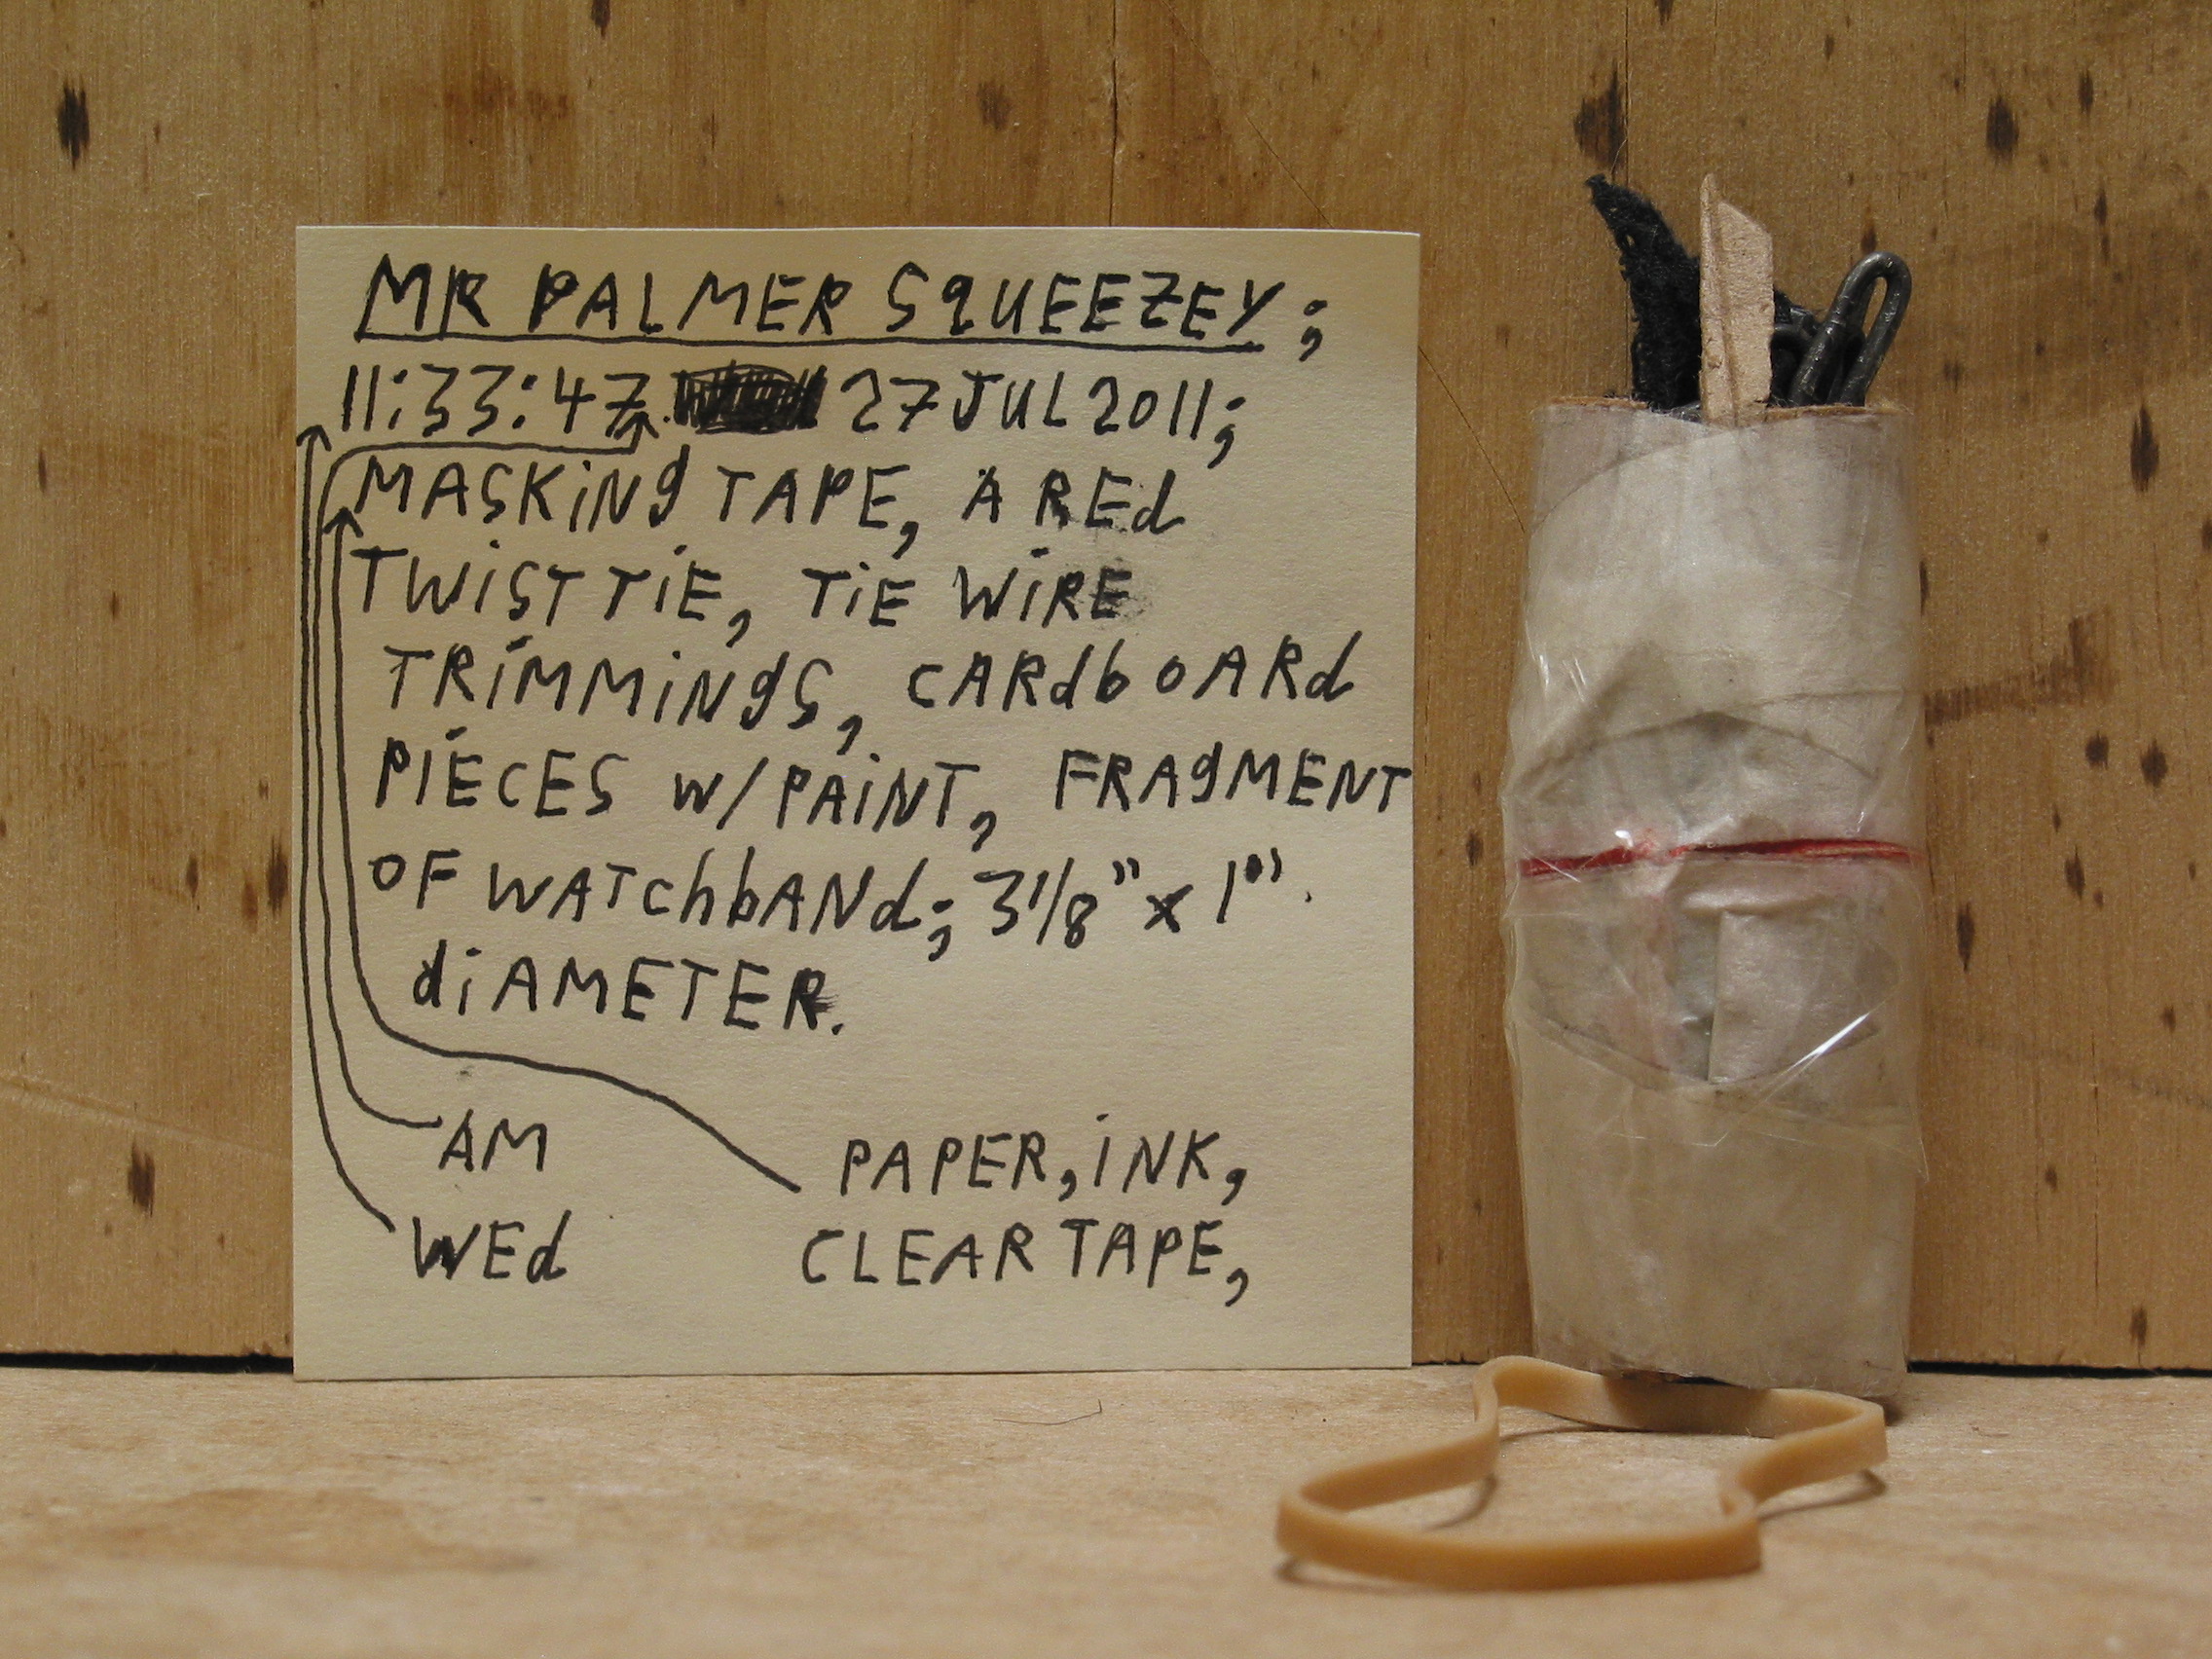 MR PALMER SQUEEZEY;
11:33:47 27 JUL 2011;
MASKiNg TAPE, A REd
TWiST TiE, TiE WiRE
TRiMMiNgS, CARdbOARd
PiECES W/PAiNT, FRAgMENT
OF WATChbANd; 3 1/8" x 1"
diAMETER.
AM
WEd
PAPER, iNK,
CLEAR TAPE,